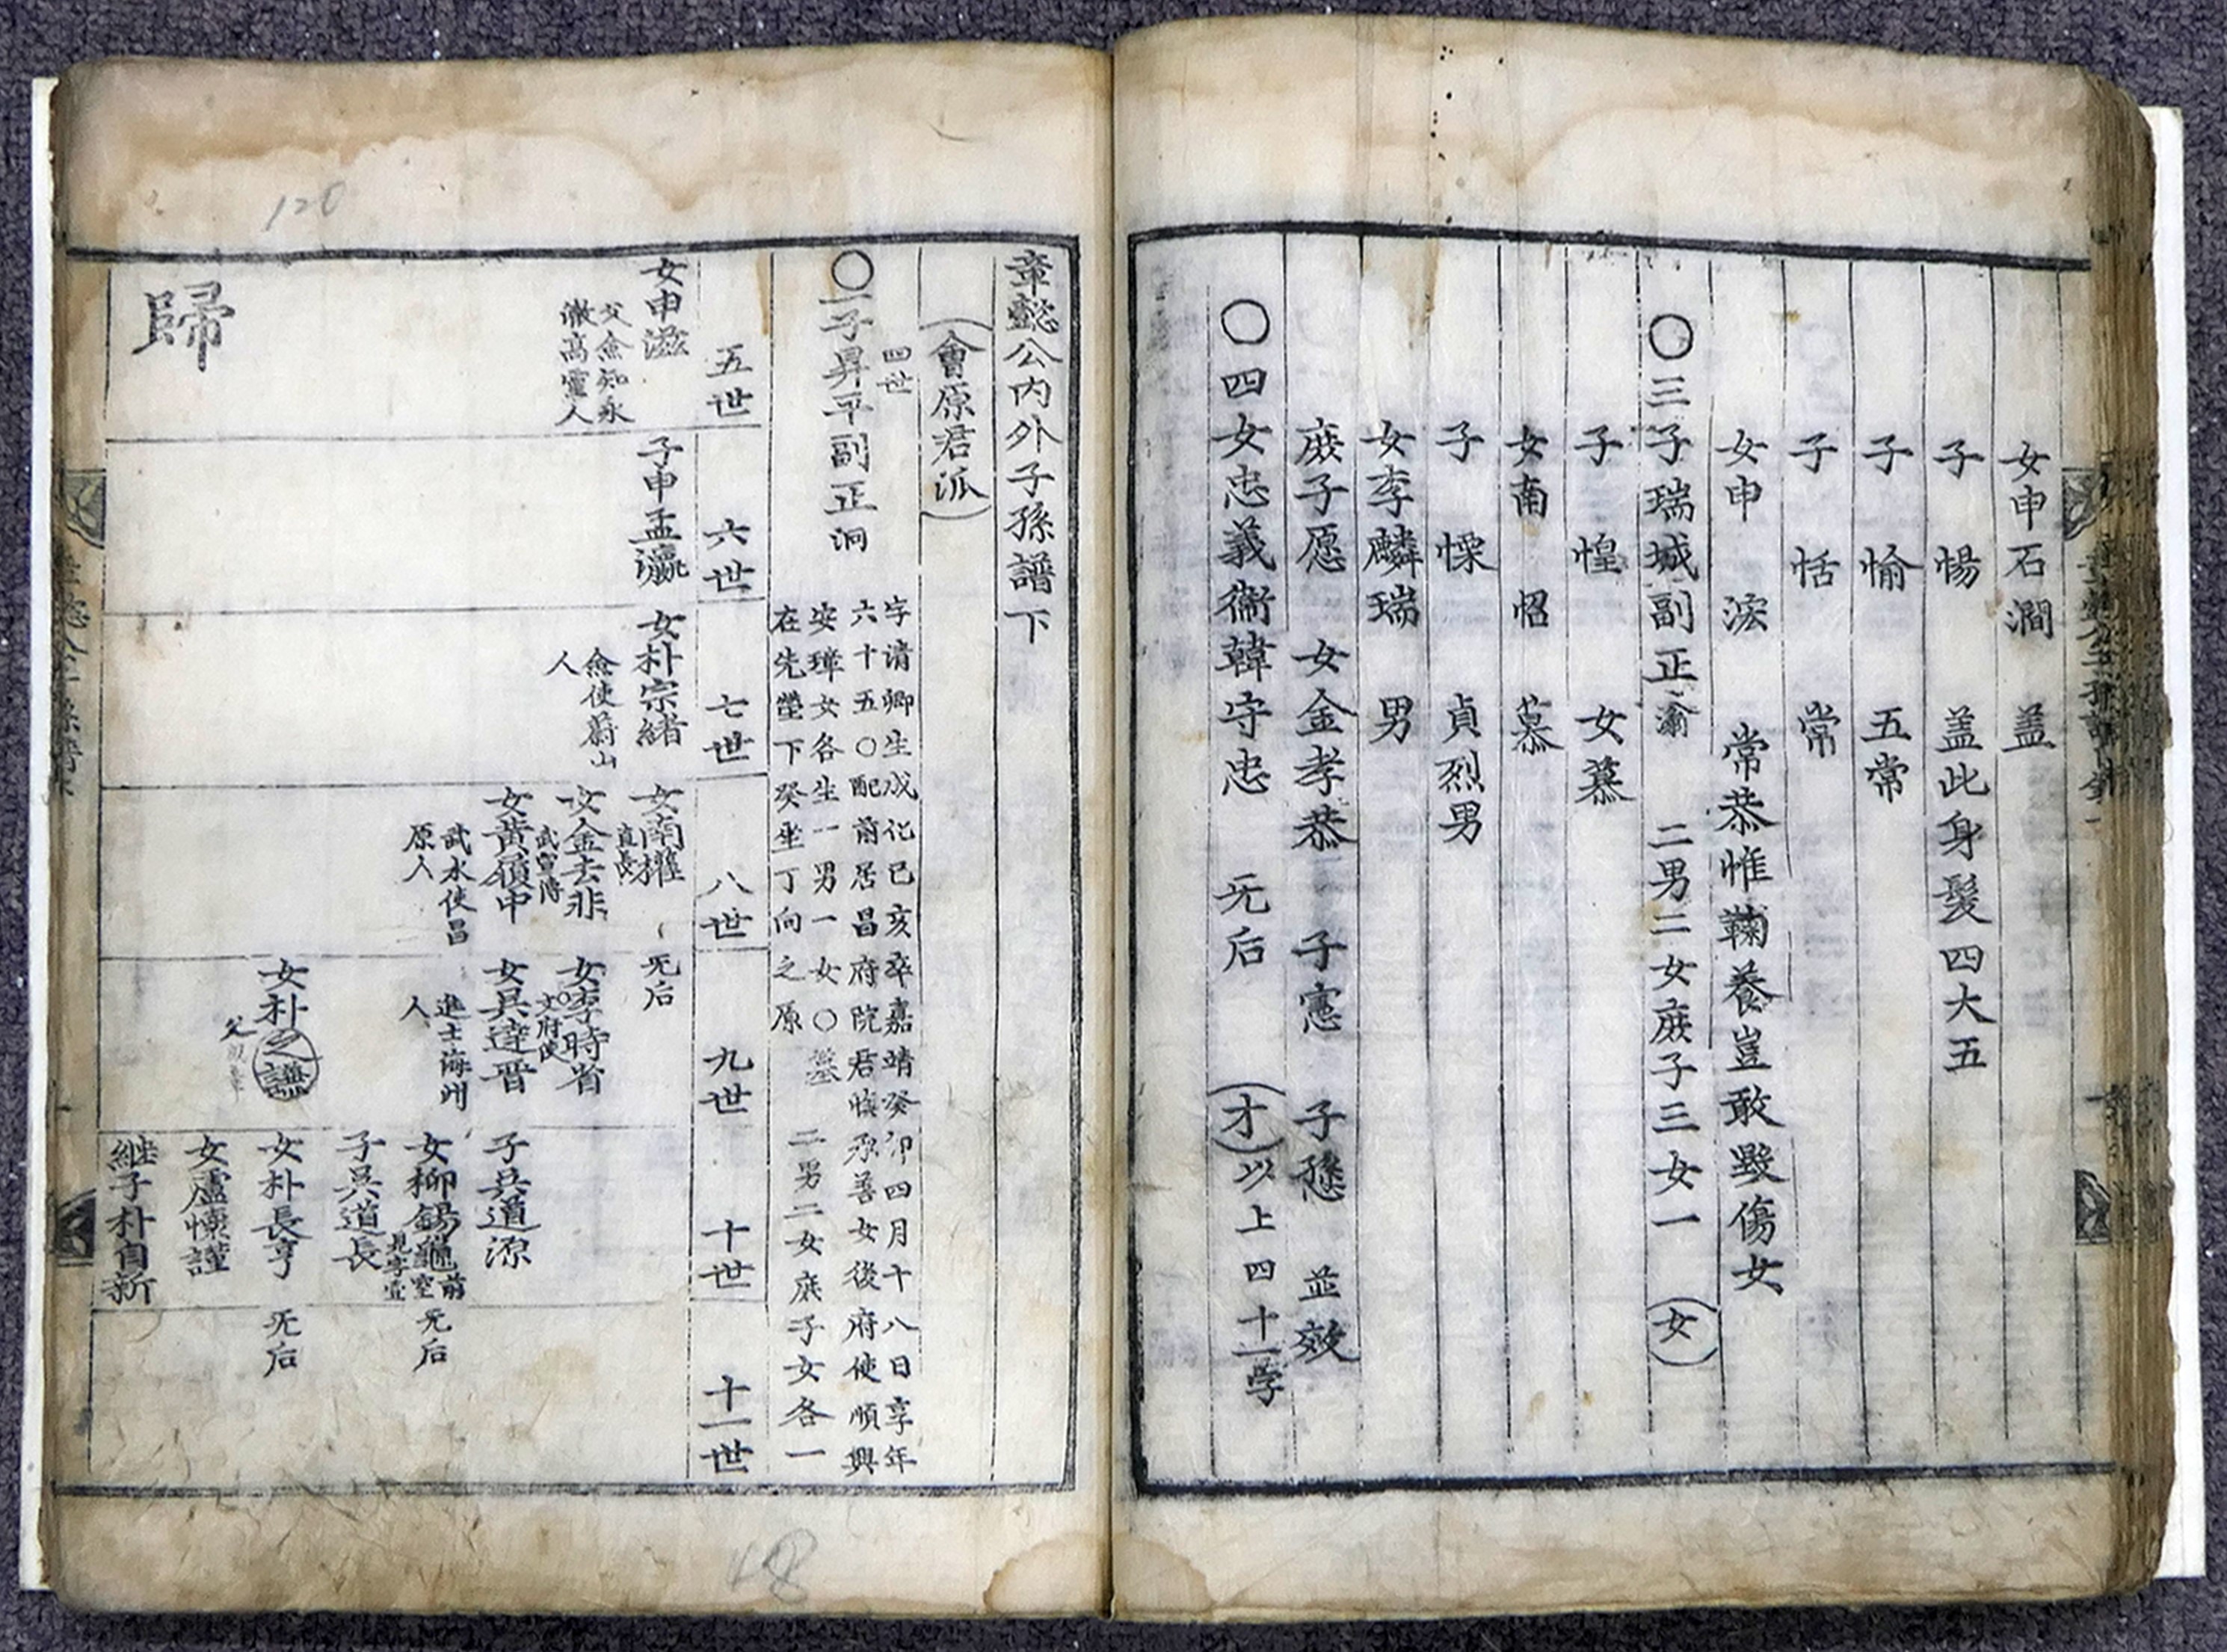 女申石澗 盖
子 愓 盖此身髮四大五
子 愉 五常
子 恬 常
女申 浤 常恭惟鞠養豈敢毀傷女
○三子瑞城副正瀹 二男二女庶子三女一 (女)
子 惶 女慕
女南 怊 慕
子 慄 貞烈男
女李麟瑞 男
庶子愿 女金孝恭 子憲 子 並效
○四女忠義衛韓守忠 旡后 (才)以上四十一学
章懿公內外子孫譜下
(會原君派)
四世
○一子昇平副正泂
字清卿生成化己亥卒嘉靖癸卯四月十八日享年
六十五○配前居昌府院君愼承善女後府使順興
安璋女各生一男一女○墓 二男二女庶子女各一
在先塋下癸坐丁向之原
五世
六世
七世
八世
九世
十世
十一世
女申滋
父僉知永
澈高靈人
子申孟瀛
女朴宗緖
僉使蔚山
人
女南㩲
直長
旡后
女金去非
武宣傳
女李時省
文府使
女黃履中
武水使昌
原人
女吳達晋
進士海州
人
子吳道源
女柳錫龜
前
空
見字壹
旡后
子吳道長
女朴之謙
父
女朴長亨
旡后
女盧懷謹
継子朴自新
歸
120
48